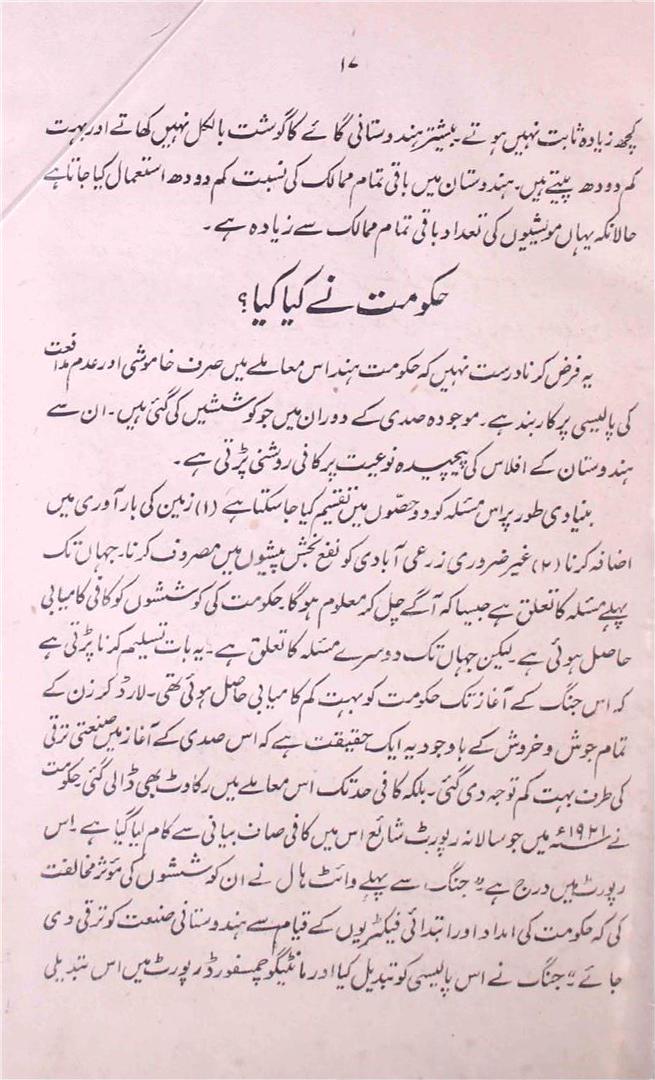 ۱۷
کچھ زیادہ ثابت نہیں ہوتے۔ بیشتر ہندوستانی گائے کا گوشت بالکل نہیں کھاتے اور بہت
کم دودھ پیتے ہیں۔ ہندوستان میں باقی تمام ممالک کی نسبت کم دودھ استعمال کیا جاتا ہے
حالانکہ یہاں مویشیوں کی تعداد باقی تمام ممالک سے زیادہ ہے۔
حکومت نے کیا کیا؟
یہ فرض کرنا درست نہیں کہ حکومت ہند اس معاملے میں صرف خاموشی اور عدم مدافعت
کی پالیسی پر کاربند ہے۔ موجودہ صدی کے دوران میں جو کوششیں کی گئی ہیں۔ ان سے
ہندوستان کے افلاس کی پیچیدہ نوعیت پر کافی روشنی پڑتی ہے۔
بنیادی طور پر اس مسئلہ کو دو حصّوں میں تقسیم کیا جا سکتا ہے (۱) زمین کی بار آوری میں
اضافہ کرنا (۲) غیر ضروری زرعی آبادی کو نفع بخش پیشوں میں مصروف کرنا۔ جہاں تک
پہلے مسئلہ کا تعلق ہے جیسا کہ آگے چل کر معلوم ہوگا۔ حکومت کی کوششوں کو کافی کامیابی
حاصل ہوئی ہے۔ لیکن جہاں تک دوسرے مسئلہ کا تعلق ہے۔ یہ بات تسلیم کرنا پڑتی ہے
کہ اس جنگ کے آغاز تک حکومت کو بہت کم کامیابی حاصل ہوئی تھی۔ لارڈ کرزن کے
تمام جوش و خروش کے باوجود یہ ایک حقیقت ہے کہ اس صدی کے آغاز میں صنعتی ترقی
کی طرف بہت کم توجہ دی گئی۔ بلکہ کافی حد تک اس معاملے میں رکاوٹ بھی ڈالی گئی۔ حکومت
نے ۱۹۲۱ء میں جو سالانہ رپورٹ شائع اس میں کافی صاف بیانی سے کام لیا گیا ہے۔ اس
رپورٹ میں درج ہے "جنگ سے پہلے وائٹ ہال نے ان کوششوں کی مؤثر مخالفت
کی کہ حکومت کی امداد اور ابتدائی فیکٹریوں کے قیام سے ہندوستانی صنعت کو ترقی دی
جائے" جنگ نے اس پالیسی کو تبدیل کیا اور مانٹیگو چمسفورڈ رپورٹ میں اس تبدیلی